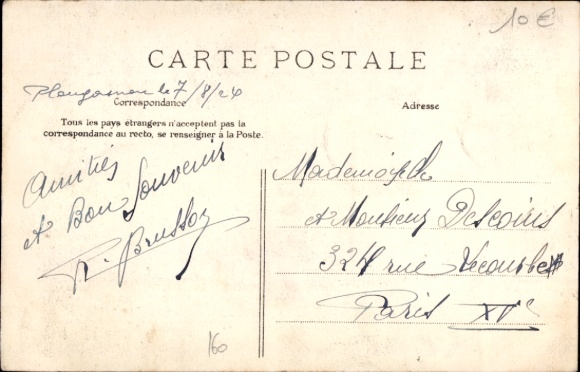 10 €
CARTE POSTALE
Plougasnou le 7/8/24
Correspondance
Adresse
Tous les pays étrangers n'acceptent pas la
correspondance au recto, se renseigner à la Poste.
Amitiés
et Bon Souvenir
Mademoiselle
et Monsieur Descoins
324 rue Lecourbe
Paris XVe
160